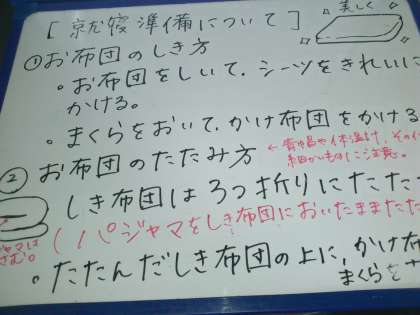 [就寝準備について]
美しく
①お布団のしき方
・お布団をしいて、シーツをきれいに
かける。
・まくらをおいて、かけ布団をかける
②お布団のたたみ方
←
体温計、その
細かいものに注意。
しき布団は3つ折りにたた
(パジャマをしき布団においたままたた
ジャマは
さむ。
・たたんだしき布団の上に、かけ布
まくらを